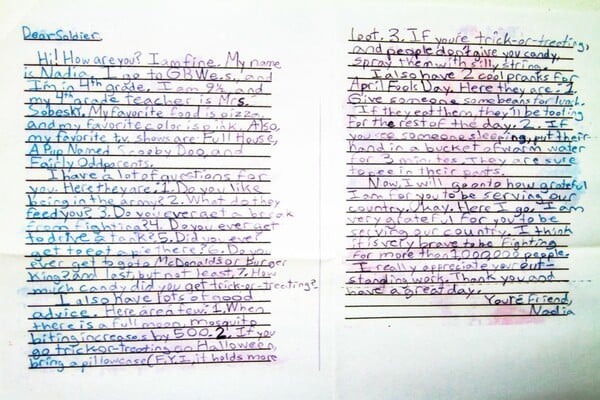 Dear Soldier,
Hi! How are you? I am fine. My name
is Nadia. I go to G.B.W.e.s., and
I'm in 4th grade. I am 9½, and
my 4th grade teacher is Mrs.
Sobeski. My favorite food is pizza,
and my favorite color is pink. Also,
my favorite t.v. shows are Full House,
A Pup Named Scooby Doo, and
Fairly Oddparents.
I have a lot of questions for
you. Here they are: 1. Do you like
being in the army? 2. What do they
feed you? 3. Do you ever get a break
from fighting? 4. Do you ever get
to drive a tank? 5. Did you ever
get to eat a pie there? 6. Do you
ever get to go to McDonalds or Burger
King? and last, but not least, 7. How
much candy did you get trick-or-treating?
I also have lots of good
advice. Here are a few: 1. When
there is a full moon, mosquito
biting increases by 500. 2. If you
go trick-or-treating on Halloween,
bring a pillowcase (F.Y.I., it holds more
loot. 3. If you're trick-or-treating,
and people don't give you candy,
spray them with silly string.
I also have 2 cool pranks for
April Fools Day. Here they are: 1.
Give someone some beans for lunch.
If they eat them, they'll be tooting
for the rest of the day. 2. If
you see someone sleeping, put their
hand in a bucket of warm water
for 3 minutes. They are sure
to pee in their pants.
Now, I will go onto how grateful
I am for you to be serving our
country. Okay. Here I go. I am
very grateful for you to be
serving our country. I think
it is very brave to be fighting
for more than 1,000,000 people.
I really appreciate your out-
standing work. Thank you and
have a great day.
Your Friend,
Nadia